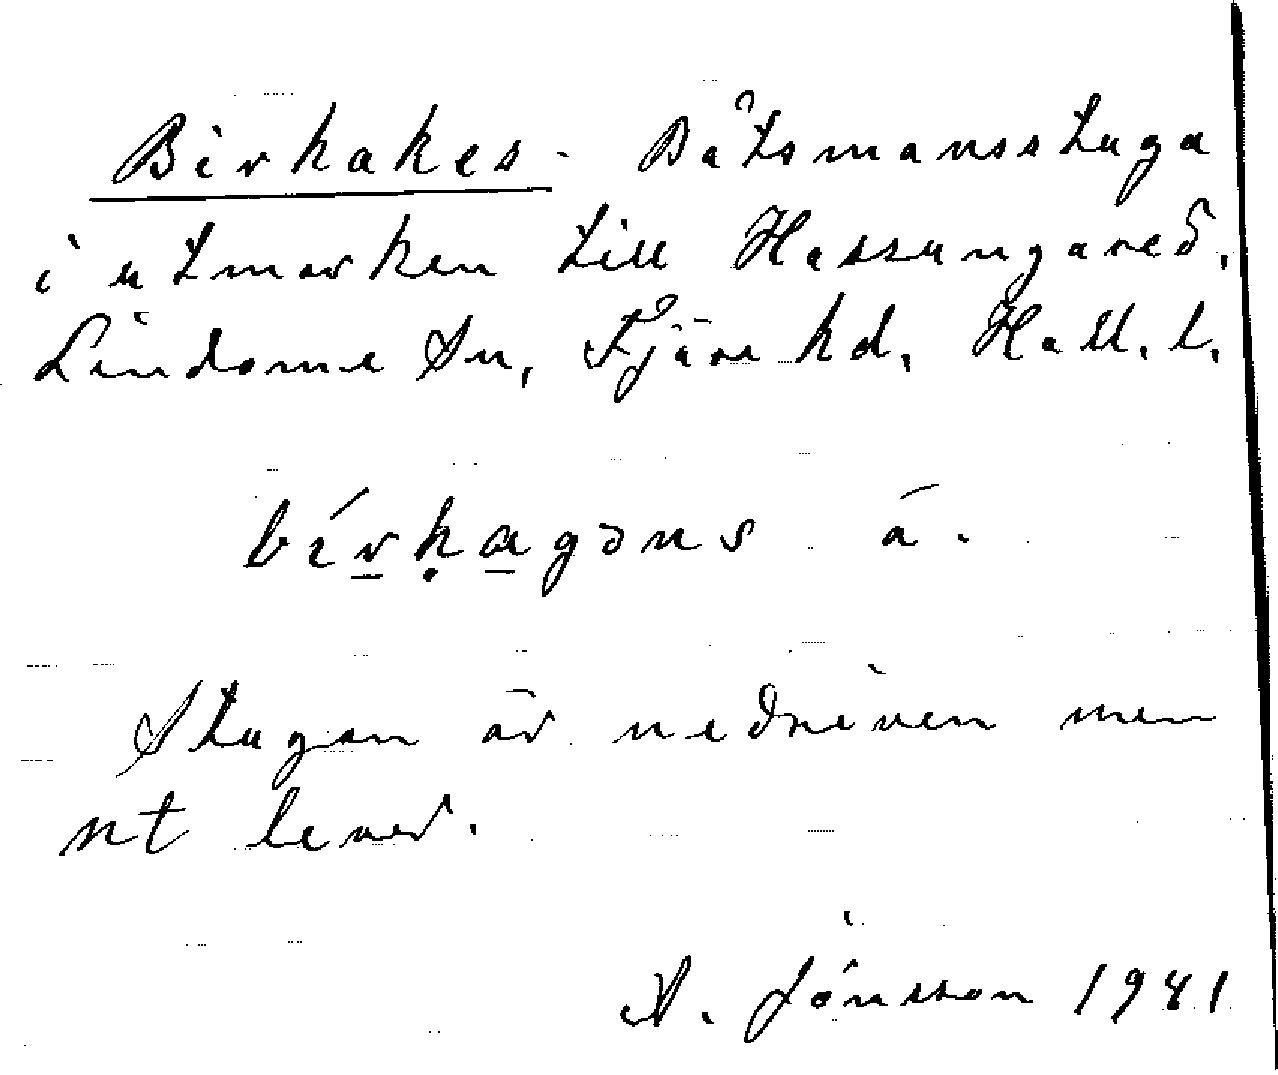 Birkakes - Båtsmansstuga
i utmarken till Hassungared,
Lindome sn, Fjäre hd, Hall. l.
bírkagəns á.
Stugan är nedriven men
nt lever.
A. Jönsson 1941